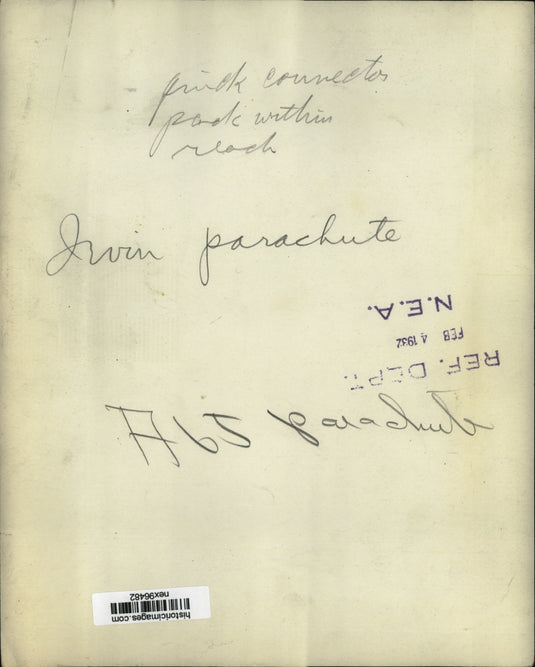 quick connector
pack within
reach
Irvin parachute
N.E.A.
FEB 4 1932
REF. DEPT.
parachute
historicimages.com
nex96482